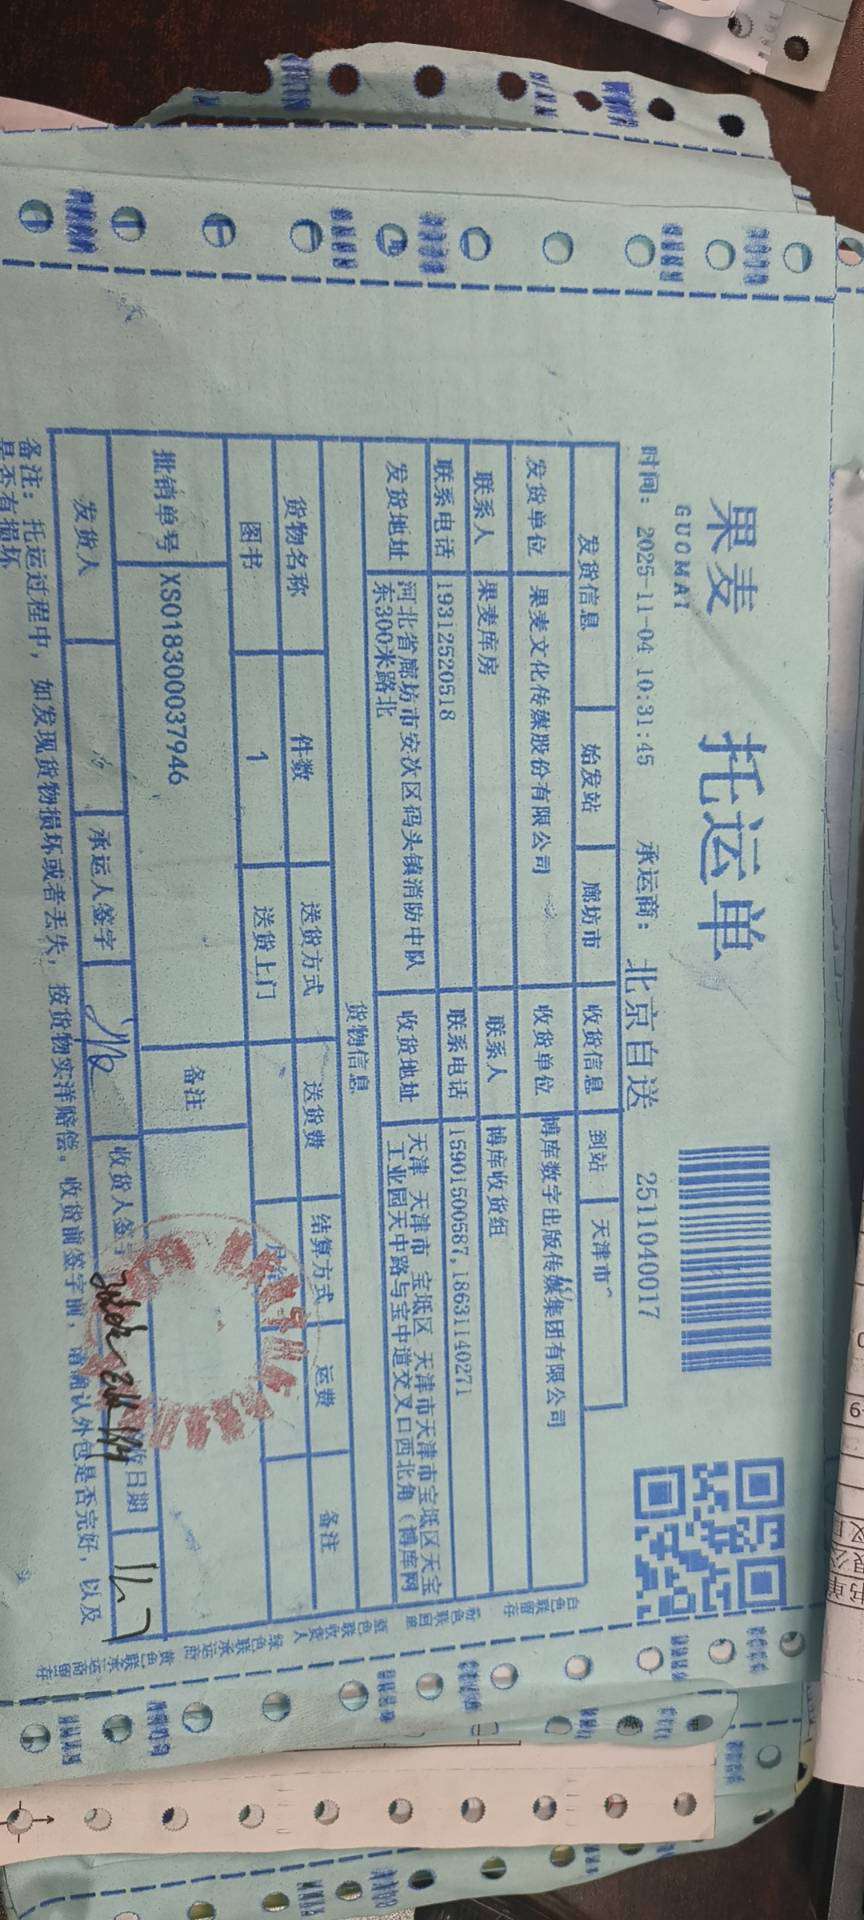 果麦 托运单
GUOMAI
时间: 2025-11-04 10:31:45 承运商: 北京自送 2511040017
发货信息 始发站 廊坊市 收货信息 到站 天津市
发货单位 果麦文化传媒股份有限公司 收货单位 博库数字出版传媒集团有限公司
联系人 果麦库房 联系人 博库收货组
联系电话 19312520518 联系电话 15901500587,18631140271
发货地址 河北省廊坊市安次区码头镇消防中队东300米路北 收货地址 天津 天津市 宝坻区 天津市天津市宝坻区天宝工业园天中路与宝中道交叉口西北角(博库网
货物信息
货物名称 件数 送货方式 送货费 结算方式 运费 备注
图书 1 送货上门
批销单号 XS018300037946 备注
发货人 承运人签字 收货人签字 收日期 11.7
备注: 托运过程中, 如发现货物损坏或者丢失, 按货物实洋赔偿。收货前签字前, 请确认外包是否完好, 以及
是否有损坏
白色联留存 粉色联回单 蓝色联收货人 绿色联承运商 黄色联承运商留存